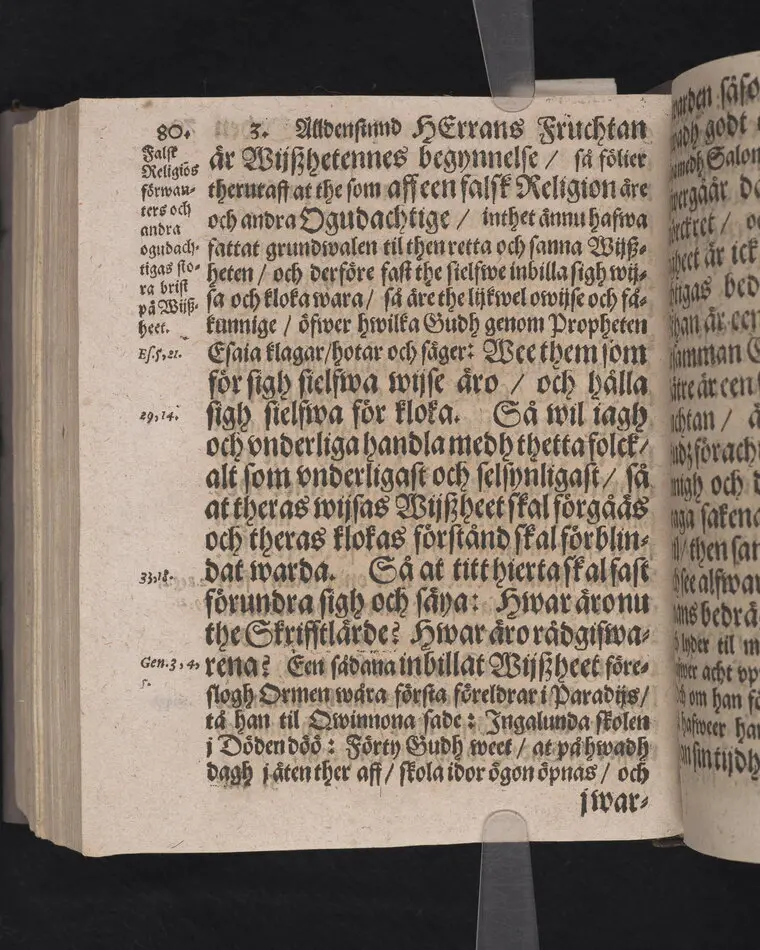 80.
3. Alldenstund HErrans Fruchtan
är Wijßhetennes begynnelse / så fölier
therutaff at the som aff een falsk Religion äre
och andra Ogudachtige / inthet ännu hafwa
fattat grundwalen til then retta och sanna Wijß-
heten / och derföre fast the sielfwe inbilla sigh wij-
sa och kloka wara / så äre the lijkwel owijse och få-
kunnige / öfwer hwilka Gudh genom Propheten
Esaia klagar/hotar och säger: Wee them som
för sigh sielfwa wijse äro / och hålla
sigh sielfwa för kloka. Så wil iagh
och vnderliga handla medh thetta folck/
alt som vnderligast och selsynligast / så
at theras wijsas Wijßheet skal förgåås
och theras klokas förstånd skal förblin-
dat warda. Så at titt hierta skal fast
förundra sigh och säya: Hwar äro nu
the Skrifftlärde? Hwar äro rådgifwa-
rena? Een sådana inbillat Wijßheet före-
slogh Ormen wåra första föreldrar i Paradijs/
tå han til Qwinnona sade: Ingalunda skolen
j Döden döö: Förty Gudh weet / at på hwadh
dagh j äten ther aff / skola idor ögon öpnas / och
jwar-
Falsk
Religiös
förwan-
ters och
andra
ogudach-
tigas sto-
ra brist
på Wijß-
heet.
Es.5,21.
29,14.
33,18.
Gen.3,4,
5.